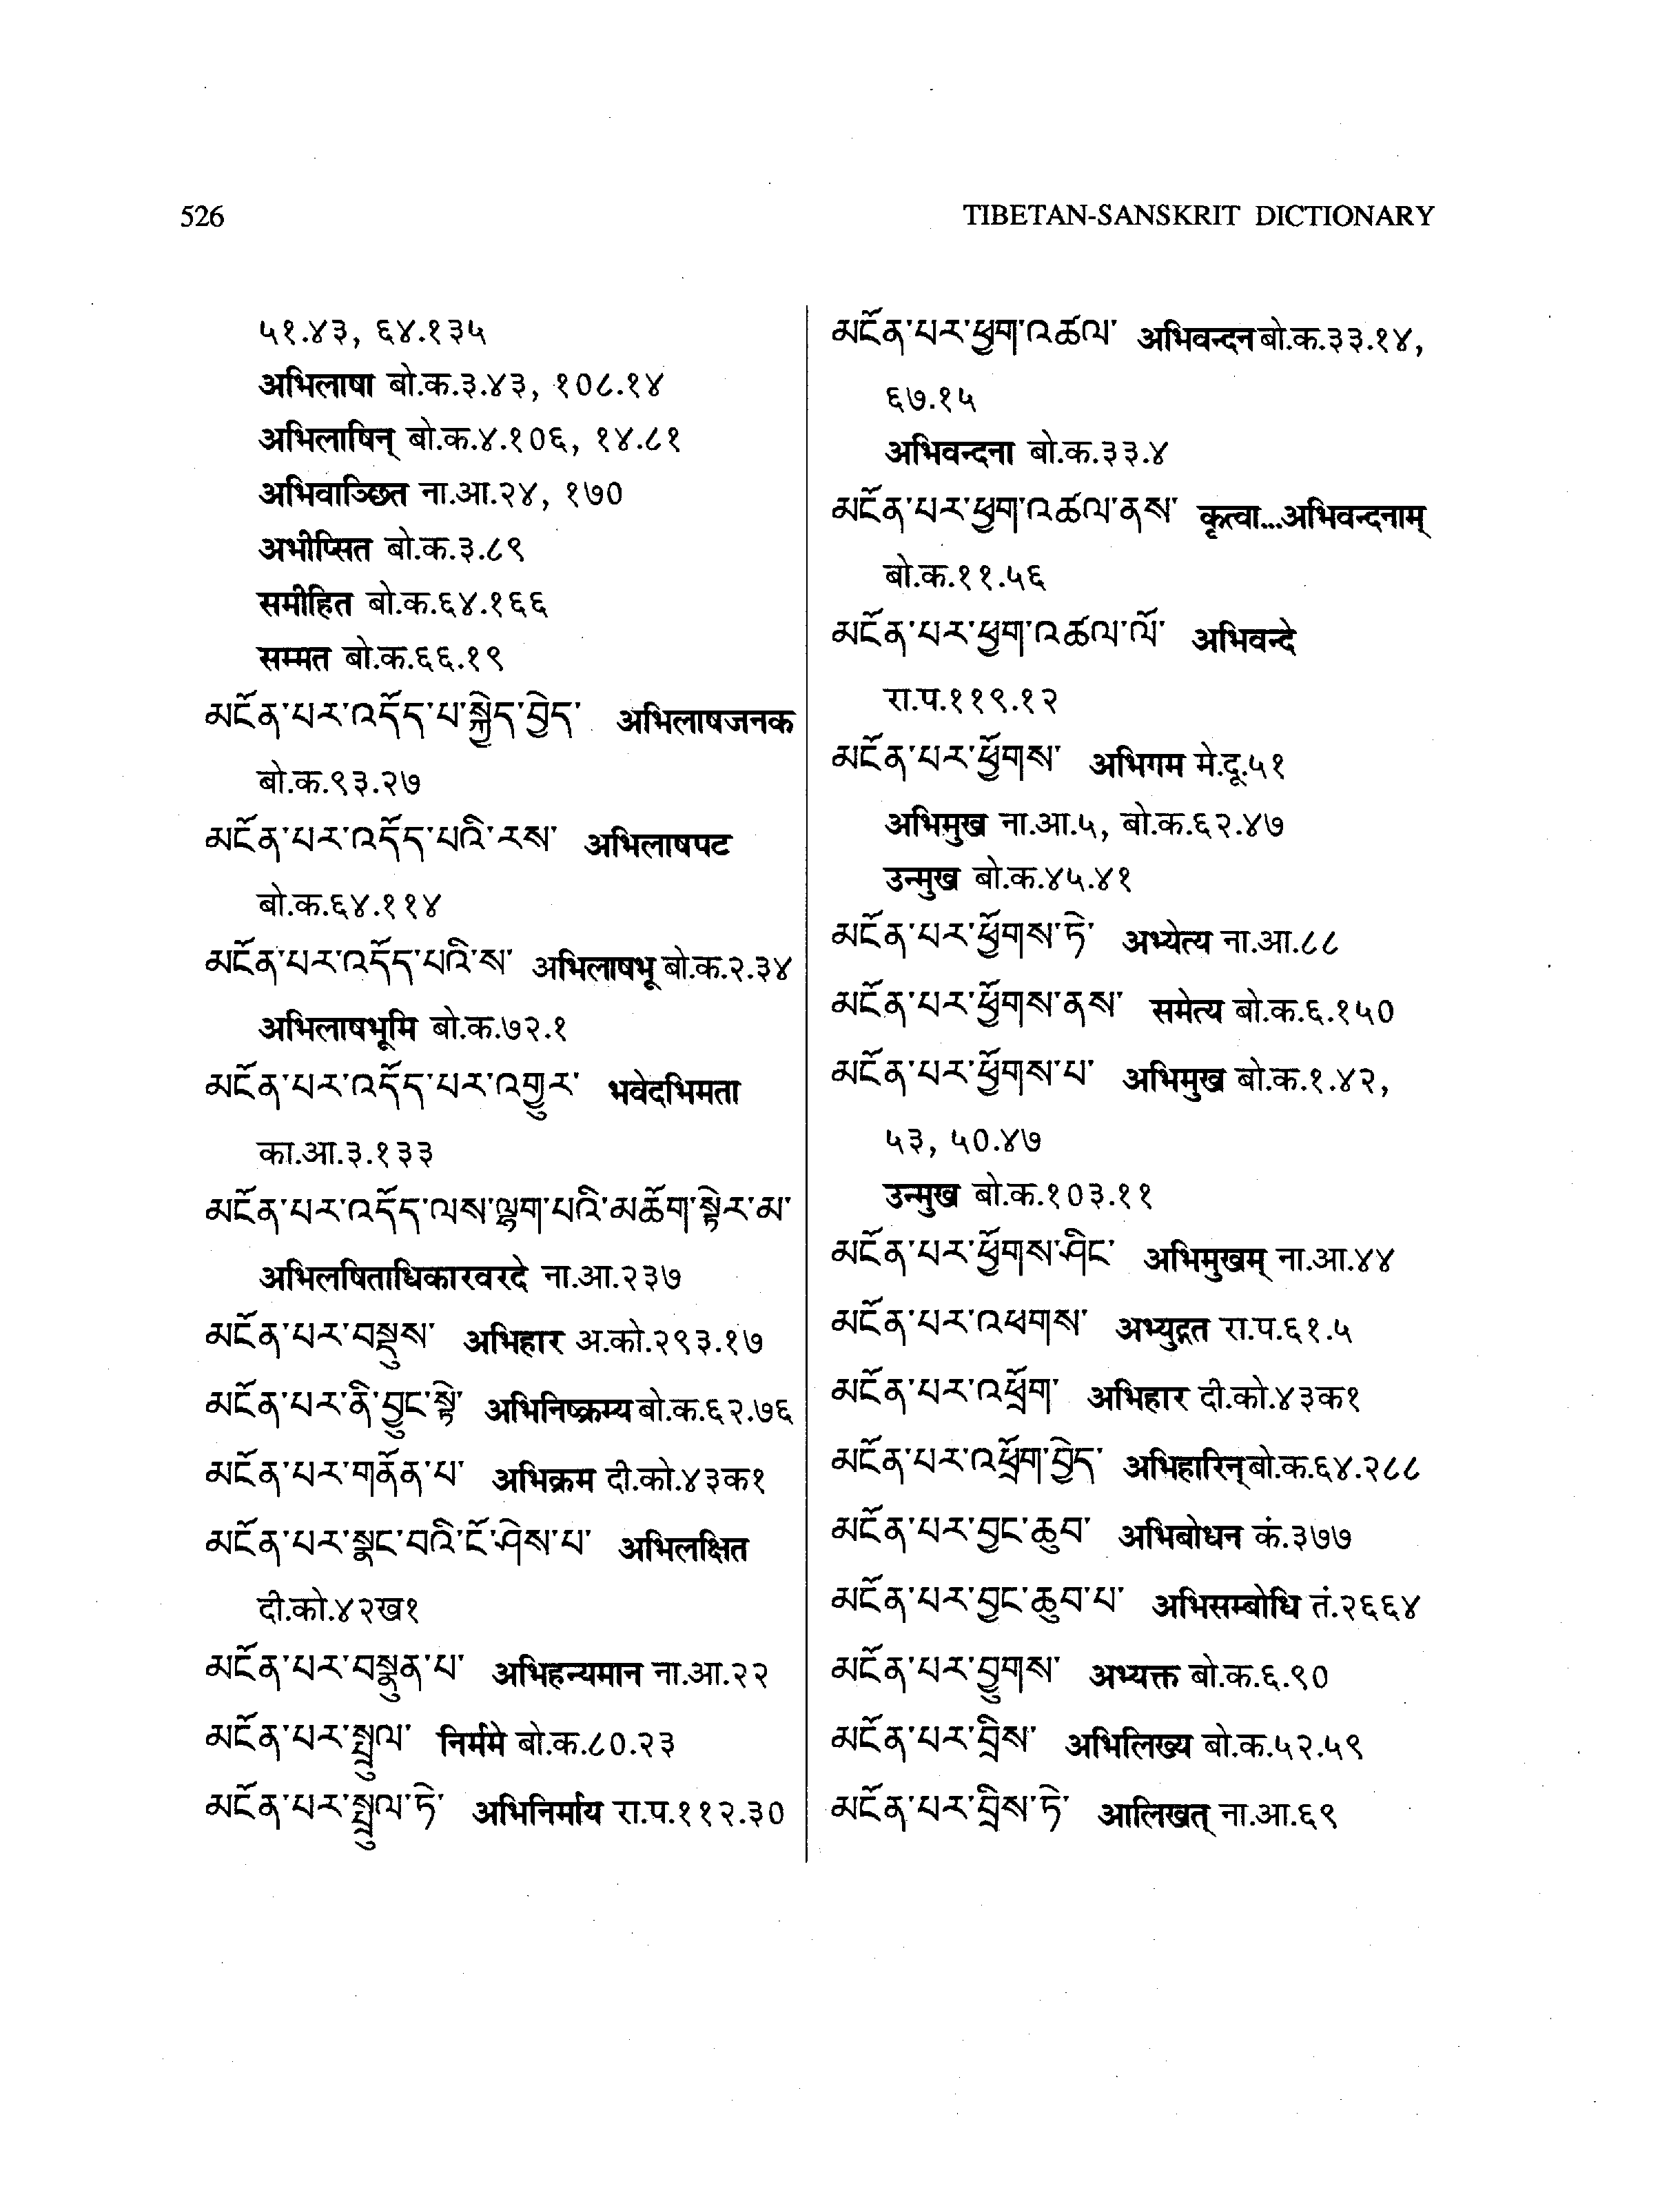 526
TIBETAN-SANSKRIT DICTIONARY
५१.४३, ६४.१३५
अभिलाषा बो.क.३.४३, १०८.१४
अभिलाषिन् बो.क.४.१०६, १४.८१
अभिवाञ्छित ना.आ.२४, १७०
अभीप्सित बो.क.३.८९
समीहित बो.क.६४.१६६
सम्मत बो.क.६६.१९
མངོན་པར་འདོད་པ་སྐྱེད་བྱེད་ अभिलाषजनक
बो.क.९३.२७
མངོན་པར་འདོད་པའི་རས་ अभिलाषपट
बो.क.६४.११४
མངོན་པར་འདོད་པའི་ས་ अभिलाषभू बो.क.२.३४
अभिलाषभूमि बो.क.७२.१
མངོན་པར་འདོད་པར་འགྱུར་ भवेदभिमता
का.आ.३.१३३
མངོན་པར་འདོད་ལས་ལྷག་པའི་མཆོག་སྟེར་མ་
अभिलषिताधिकारवरदे ना.आ.२३७
མངོན་པར་བསྡུས་ अभिहार अ.को.२९३.१७
མངོན་པར་ནི་བྱུང་སྟེ་ अभिनिष्क्रम्य बो.क.६२.७६
མངོན་པར་གནོན་པ་ अभिक्रम दी.को.४३क१
མངོན་པར་སྣང་བའི་ངོ་ཤེས་པ་ अभिलक्षित
दी.को.४२ख१
མངོན་པར་བསྣུན་པ་ अभिहन्यमान ना.आ.२२
མངོན་པར་སྤྲུལ་ निर्ममे बो.क.८०.२३
མངོན་པར་སྤྲུལ་ཏེ་ अभिनिर्माय रा.प.११२.३०
མངོན་པར་ཕྱག་འཚལ་ अभिवन्दन बो.क.३३.१४,
६७.१५
अभिवन्दना बो.क.३३.४
མངོན་པར་ཕྱག་འཚལ་ནས་ कृत्वा...अभिवन्दनाम्
बो.क.११.५६
མངོན་པར་ཕྱག་འཚལ་ལོ་ अभिवन्दे
रा.प.११९.१२
མངོན་པར་ཕྱོགས་ अभिगम मे.दू.५१
अभिमुख ना.आ.५, बो.क.६२.४७
उन्मुख बो.क.४५.४१
མངོན་པར་ཕྱོགས་ཏེ་ अभ्येत्य ना.आ.८८
མངོན་པར་ཕྱོགས་ནས་ समेत्य बो.क.६.१५०
མངོན་པར་ཕྱོགས་པ་ अभिमुख बो.क.१.४२,
५३, ५०.४७
उन्मुख बो.क.१०३.११
མངོན་པར་ཕྱོགས་ཤིང་ अभिमुखम् ना.आ.४४
མངོན་པར་འཕགས་ अभ्युद्गत रा.प.६१.५
མངོན་པར་འཕྲོག་ अभिहार दी.को.४३क१
མངོན་པར་འཕྲོག་བྱེད་ अभिहारिन् बो.क.६४.२८८
མངོན་པར་བྱང་ཆུབ་ अभिबोधन कं.३७७
མངོན་པར་བྱང་ཆུབ་པ་ अभिसम्बोधि तं.२६६४
མངོན་པར་བྱུགས་ अभ्यक्त बो.क.६.९०
མངོན་པར་བྲིས་ अभिलिख्य बो.क.५२.५९
མངོན་པར་བྲིས་ཏེ་ आलिखत् ना.आ.६९